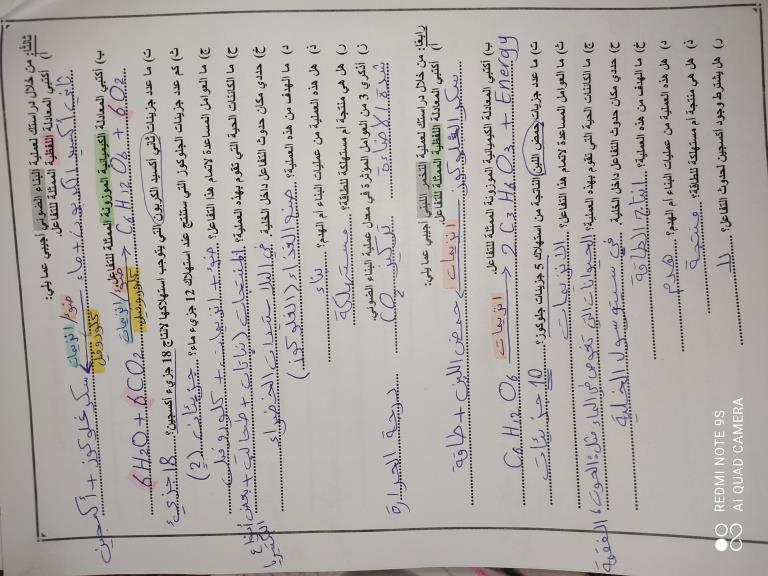 ثالثاً: من خلال دراستك لعملية البناء الضوئي أجيبي عما يلي:
أ) أكتبي المعادلة اللفظية الممثلة للتفاعل.
ضوء/انزيمات
ثاني أكسيد الكربون + ماء → سكر غلوكوز + أكسجين
كلوروفيل
ب) أكتبي المعادلة الكيميائية الموزونة الممثلة للتفاعل.
ضوء/انزيمات
6H2O + 6CO2 → C6H12O6 + 6O2
كلوروفيل
ت) ما عدد جزيئات ثاني أكسيد الكربون التي يتوجب استهلاكها لانتاج 18 جزيء أكسجين؟
18 جزيء
ث) كم عدد جزيئات الجلوكوز التي ستنتج عند استهلاك 12 جزيء ماء؟ جزيئان (2)
ج) ما العوامل المساعدة لاتمام هذا التفاعل؟ ضوء + انزيمات + كلوروفيل
ح) ما الكائنات الحية التي تقوم بهذه العملية؟ المنتجات (نباتات + طحالب + بعض أنواع البكتيريا
خ) حددي مكان حدوث التفاعل داخل الخلية. في البلاستيدات الخضراء
د) ما الهدف من هذه العملية؟ صنع الغذاء (الغلوكوز)
ذ) هل هذه العملية من عمليات البناء أم الهدم؟ بناء
ر) هل هي منتجة أم مستهلكة للطاقة؟ مستهلكة
ز) اذكري 3 من العوامل المؤثرة في معدل عملية البناء الضوئي.
شدة الإضاءة تركيز CO2 درجة الحرارة
رابعاً: من خلال دراستك لعملية التخمر اللبني أجيبي عما يلي:
أ) أكتبي المعادلة اللفظية الممثلة للتفاعل.
انزيمات
سكر الغلوكوز → حمض اللبن + طاقة
ب) أكتبي المعادلة الكيميائية الموزونة الممثلة للتفاعل.
انزيمات
C6H12O6 → 2 C3H6O3 + Energy
ت) ما عدد جزيئات حمض اللبن الناتجة من استهلاك 5 جزيئات جلوكوز؟
10 جزيئات
ث) ما العوامل المساعدة لاتمام هذا التفاعل؟ الانزيمات
ج) ما الكائنات الحية التي تقوم بهذه العملية؟ الحيوانات التي تغوص في الماء مثل: الحوت، الفقمة
ح) حددي مكان حدوث التفاعل داخل الخلية. في سيتوسول الخلية
خ) ما الهدف من هذه العملية؟ انتاج الطاقة
د) هل هذه العملية من عمليات البناء أم الهدم؟ هدم
ذ) هل هي منتجة أم مستهلكة للطاقة؟ منتجة
ر) هل يشترط وجود أكسجين لحدوث التفاعل؟ لا
REDMI NOTE 9S
AI QUAD CAMERA